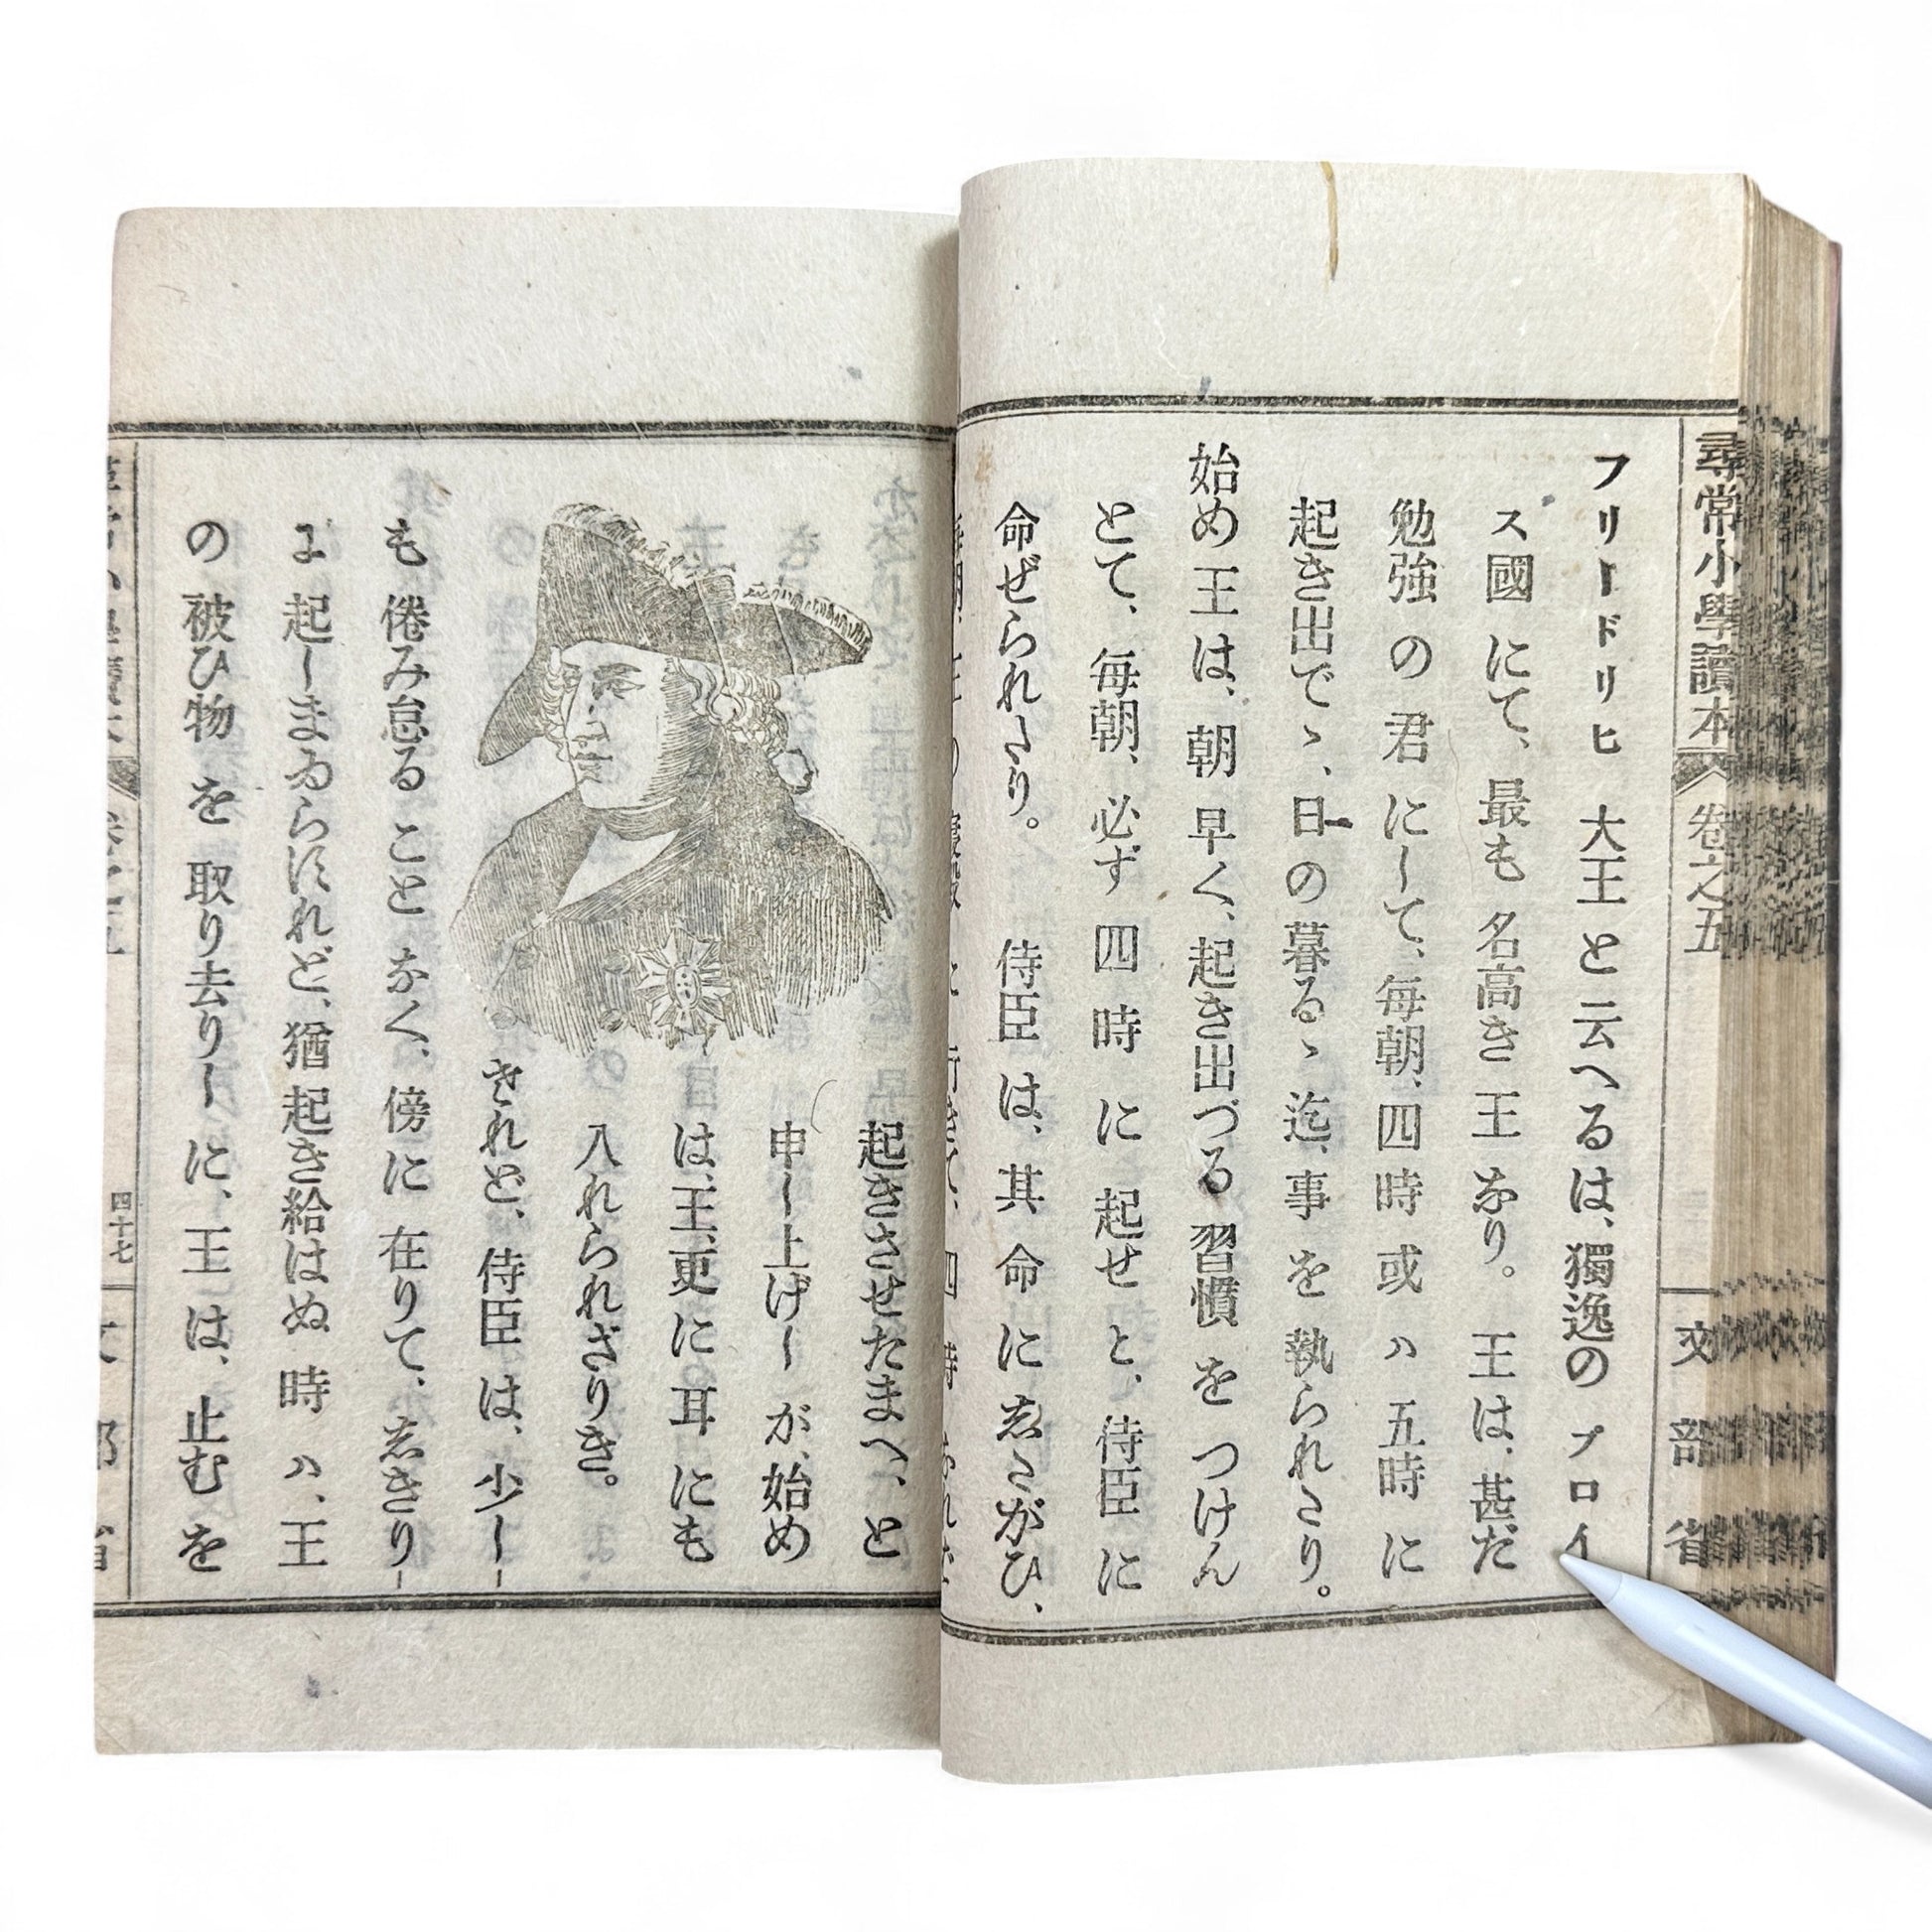 尋常小學讀本 卷之五 文部省
フリードリヒ大王と云へるは、獨逸のプロイ
ス國にて、最も名高き王なり。王は、甚だ
勉強の君にして、毎朝、四時或ハ五時に
起き出でゝ、日の暮るゝ迄、事を執られたり。
始め王は、朝早く、起き出づる習慣をつけん
とて、毎朝、必ず四時に起せと、侍臣に
命ぜられたり。侍臣は、其命に志たがひ、
起きさせたまへ、と
申し上げしが、始め
は、王、更に耳にも
入れられざりき。
されど、侍臣は、少し
も倦み怠ることなく、傍に在りて、志きり
に起しまゐらすれど、猶起き給はぬ時ハ、王
の被ひ物を取り去りしに、王は、止むを
四十七